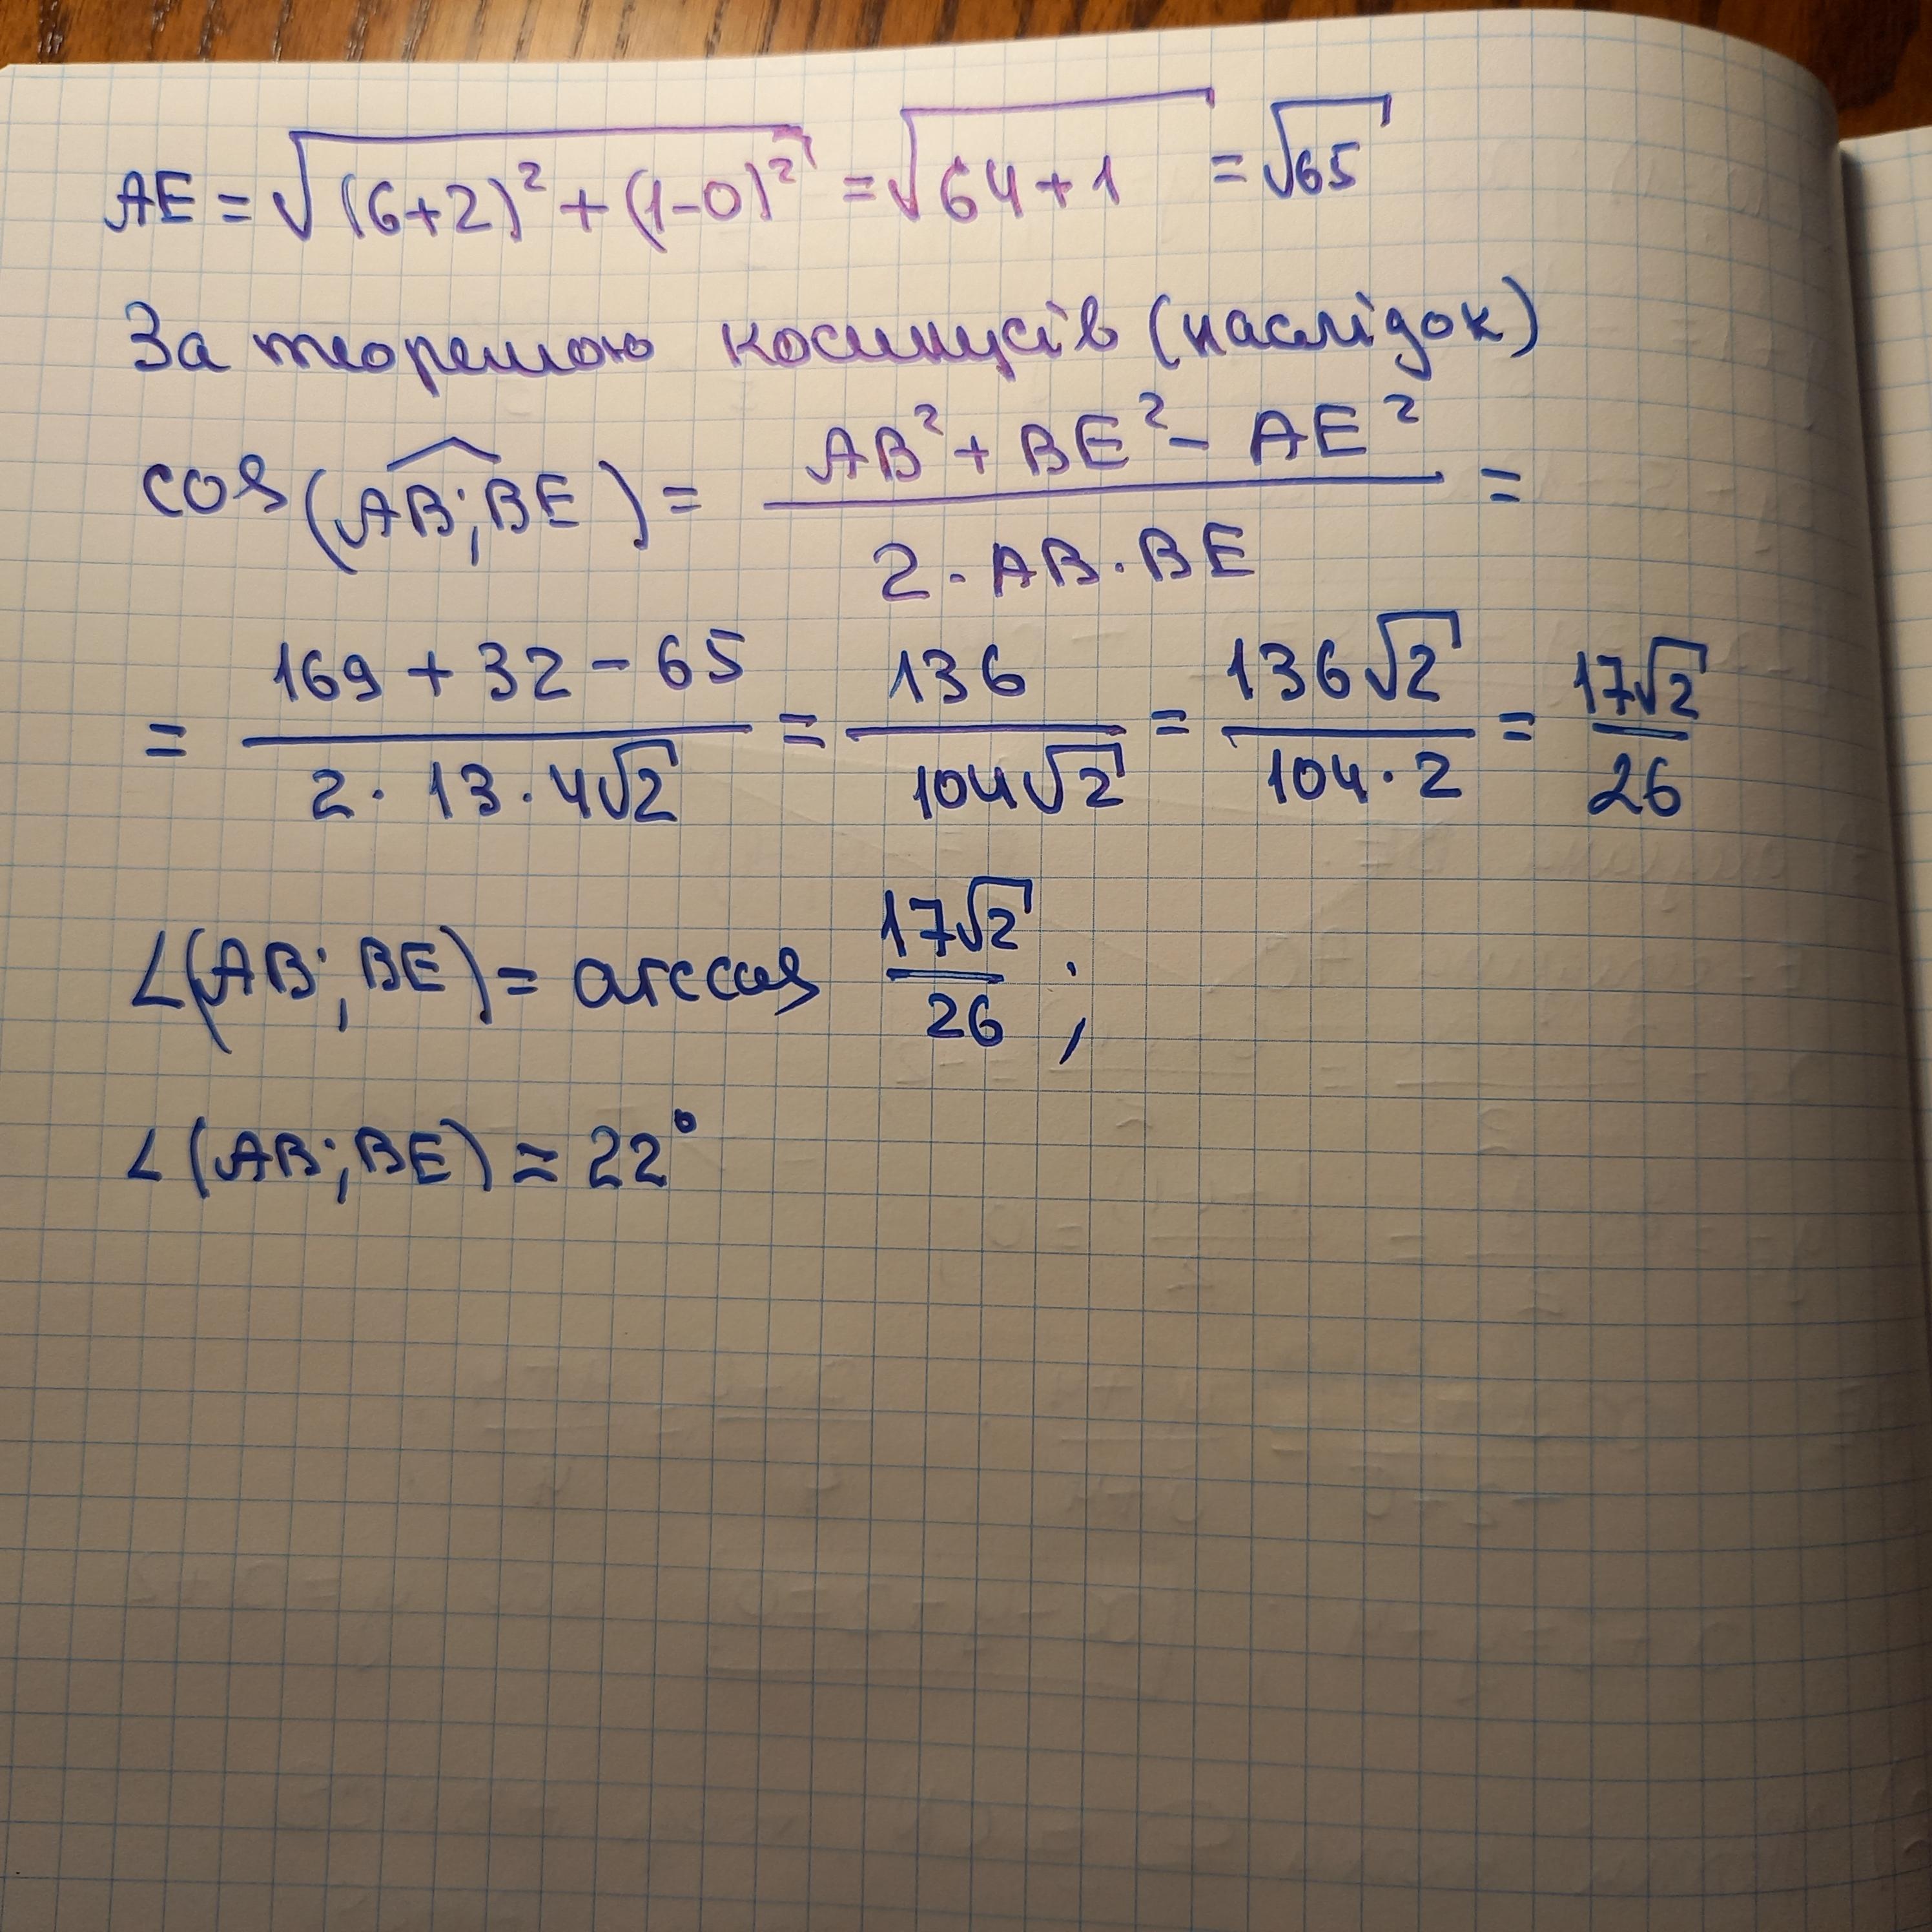 AE = √((6+2)² + (1-0)²) = √(64+1) = √65
За теоремою косинусів (наслідок)
cos(AB^;BE) = (AB² + BE² - AE²)/(2·AB·BE) =
= (169 + 32 - 65)/(2·13·4√2) = 136/(104√2) = 136√2/(104·2) = 17√2/26
∠(AB; BE) = arccos 17√2/26 ;
∠(AB; BE) ≈ 22°